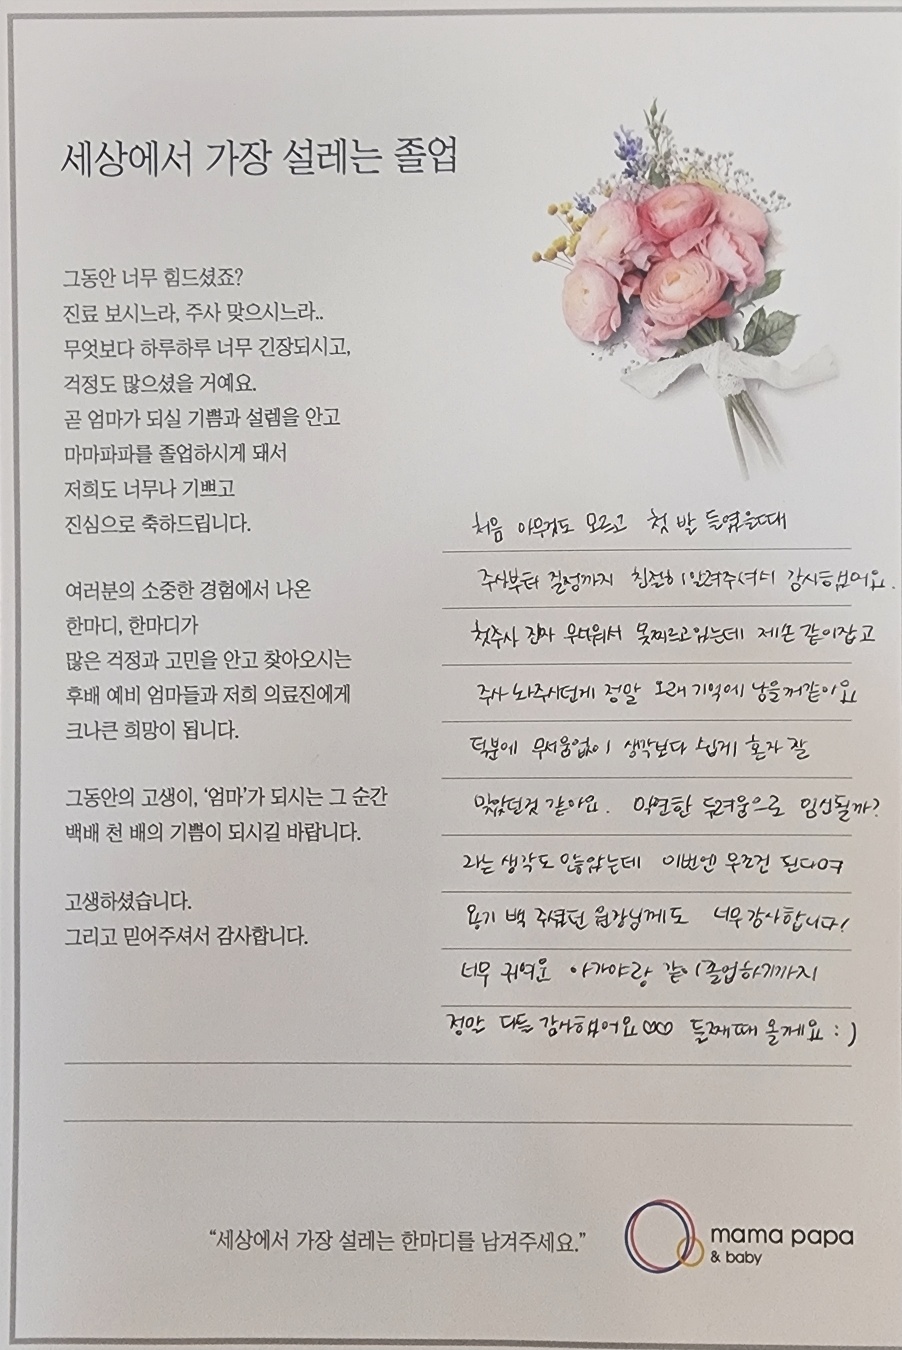 세상에서 가장 설레는 졸업
그동안 너무 힘드셨죠?
진료 보시느라, 주사 맞으시느라..
무엇보다 하루하루 너무 긴장되시고,
걱정도 많으셨을 거예요.
곧 엄마가 되실 기쁨과 설렘을 안고
마마파파를 졸업하시게 돼서
저희도 너무나 기쁘고
진심으로 축하드립니다.
여러분의 소중한 경험에서 나온
한마디, 한마디가
많은 걱정과 고민을 안고 찾아오시는
후배 예비 엄마들과 저희 의료진에게
크나큰 희망이 됩니다.
그동안의 고생이, ‘엄마’가 되시는 그 순간
백배 천 배의 기쁨이 되시길 바랍니다.
고생하셨습니다.
그리고 믿어주셔서 감사합니다.
처음 아무것도 모르고 첫 발 들였을때
주사부터 질정까지 친절히 알려주셔서 감사했어요.
첫주사 진짜 무서워서 못찌르고있는데 제손 같이잡고
주사 놔주시던게 정말 오래 기억에 남을꺼같아요
덕분에 무서움없이 생각보다 쉽게 혼자 잘
맞았던것 같아요. 막연한 두려움으로 임신될까?
라는 생각도 안들았는데 이번엔 무조건 된다며
용기 백 주셨던 원장님께도 너무감사합니다!
너무 귀여운 아가야랑 같이 졸업하기까지
정말 다들 감사했어요 둘째때 올게요 : (
“세상에서 가장 설레는 한마디를 남겨주세요.”
mama papa
& baby